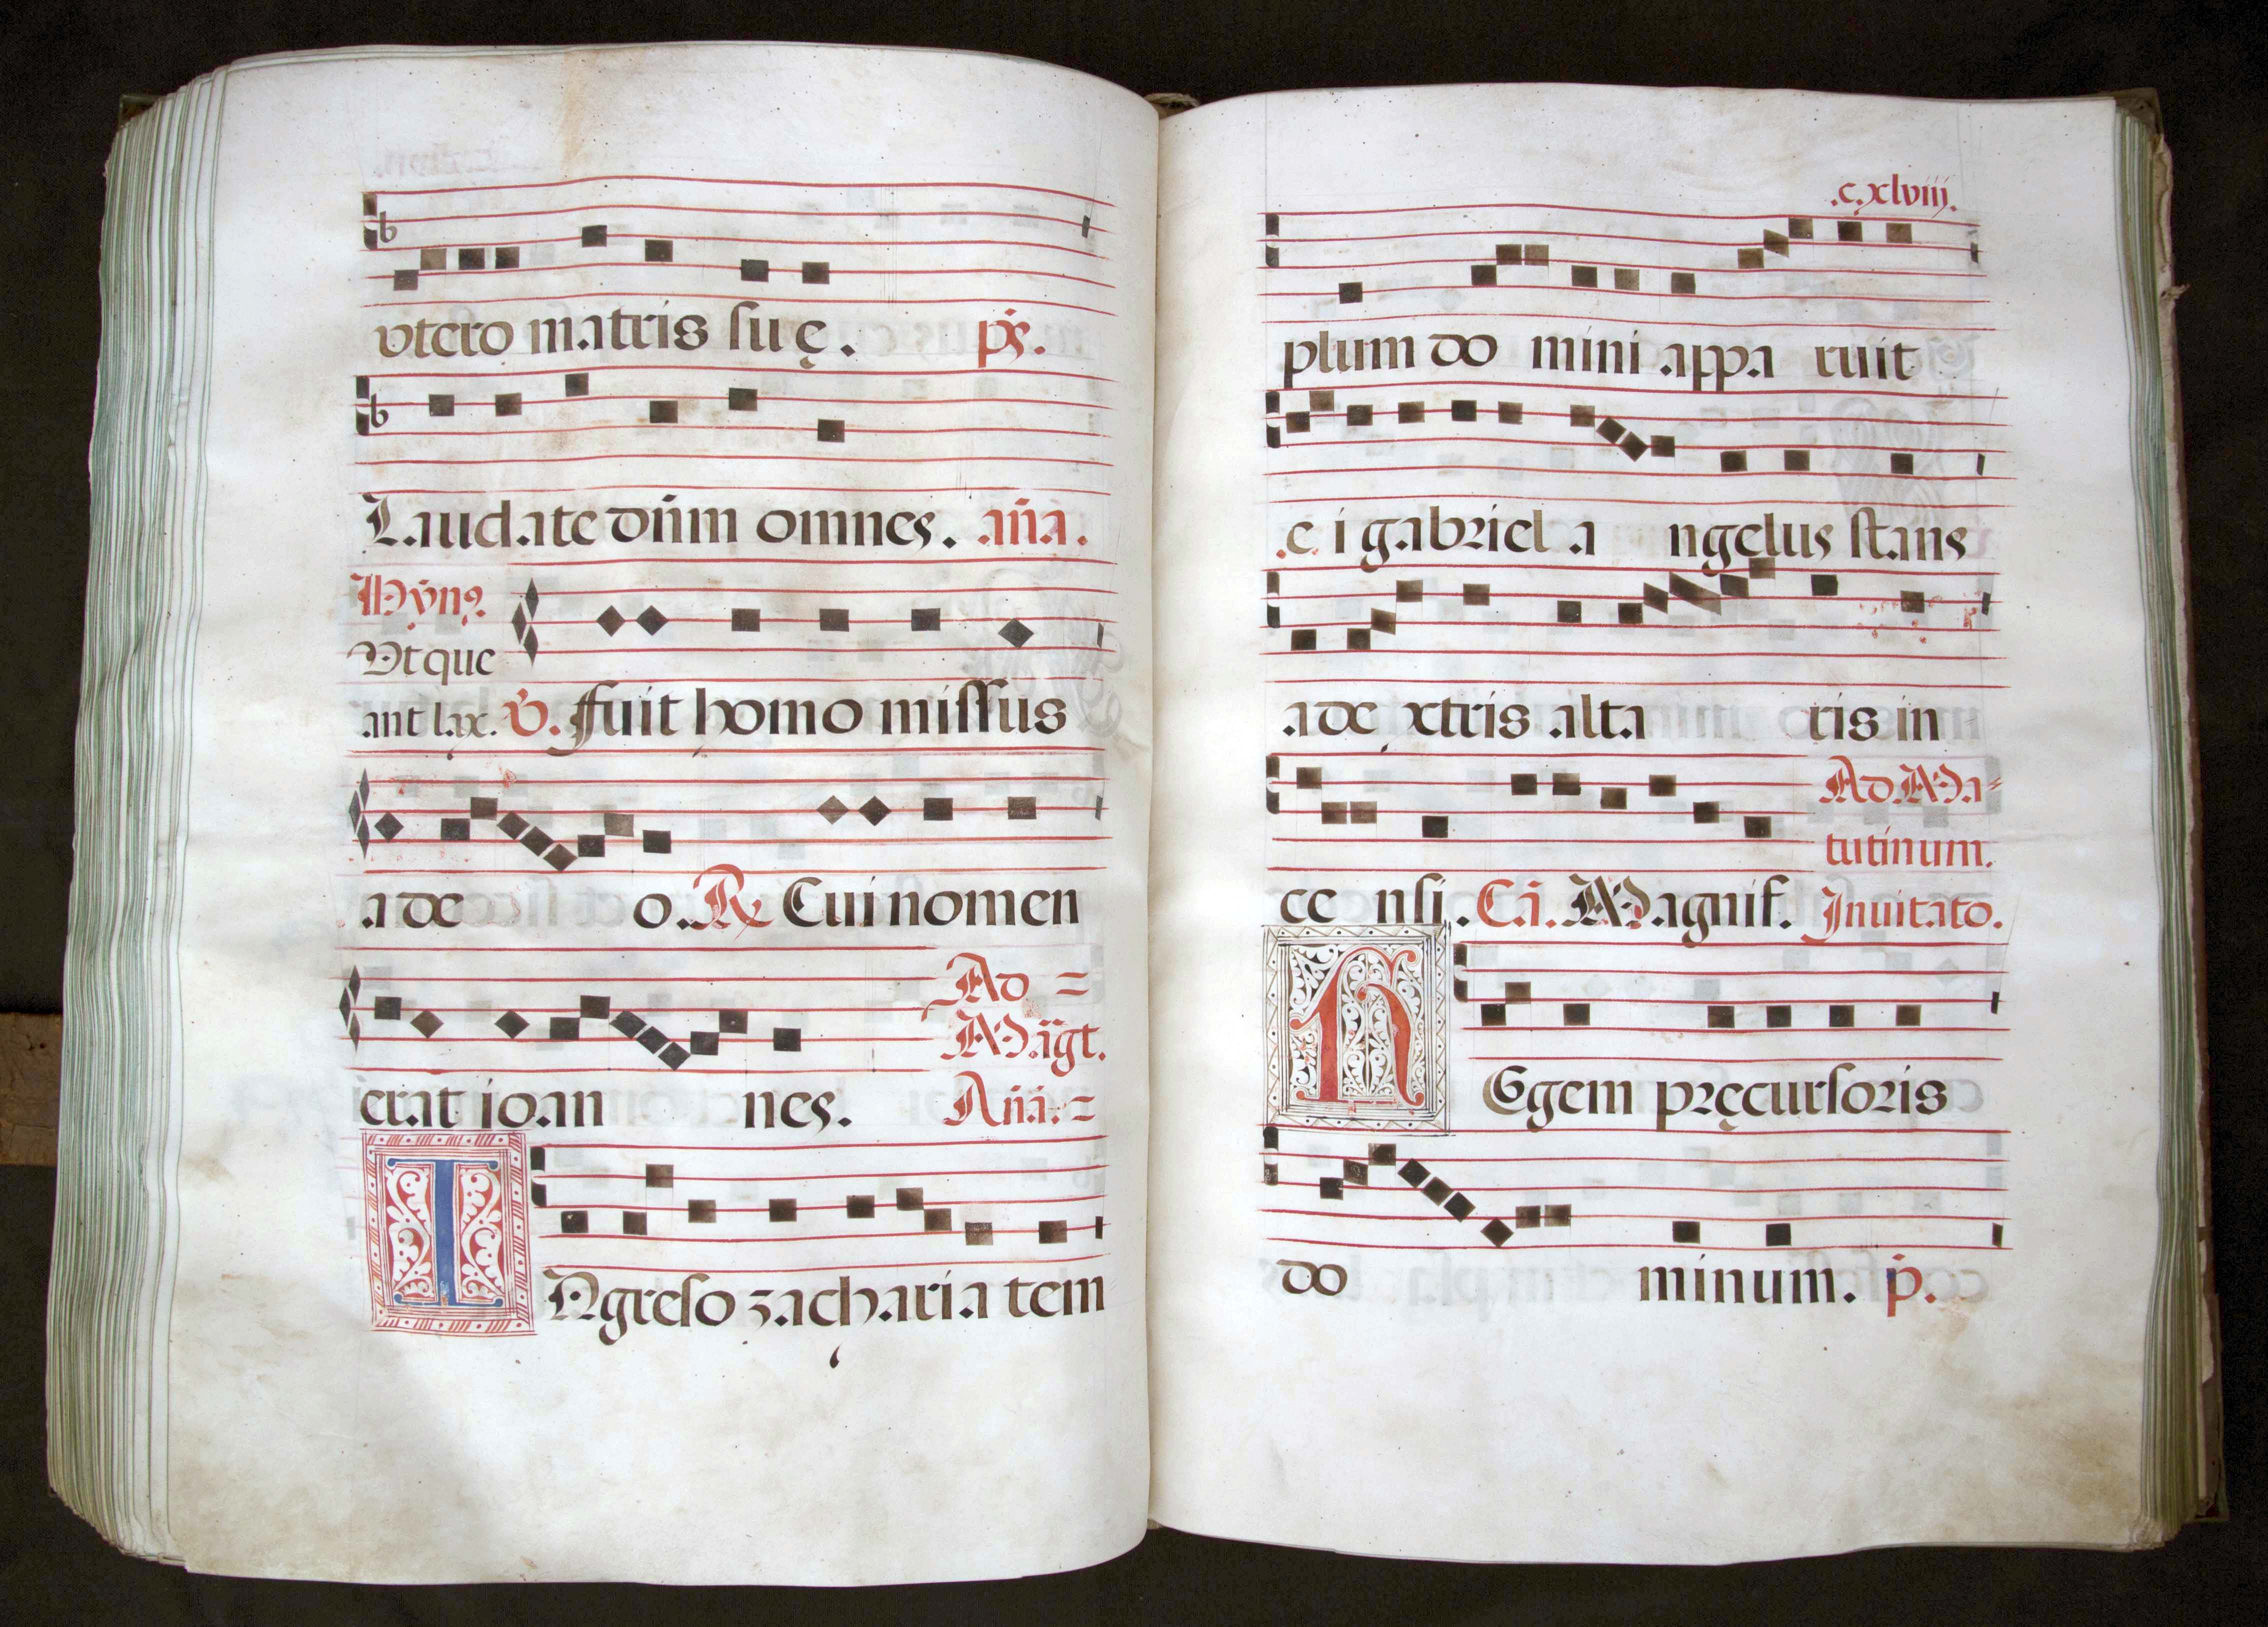 utero matris suę. ps.
Laudate dñm omnes. aña.
Hyn9.
Ut que
ant lax. V. Fuit homo missus
a de o. R Cui nomen
Ad =
Magt.
erat ioan nes. Aña. =
INgreso zacharia tem
.c.xlviij.
plum do mini appa ruit
e i gabriel a ngelus stans
a de xtris alta ris in
Ad Ma=
tutinum.
ce nsi. Cã. Magnif. Inuitato.
REgem pręcursoris
do minum. p.